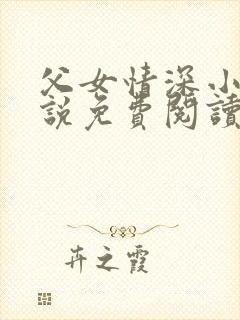 父女情深小
說免費閱讀
卉之霞